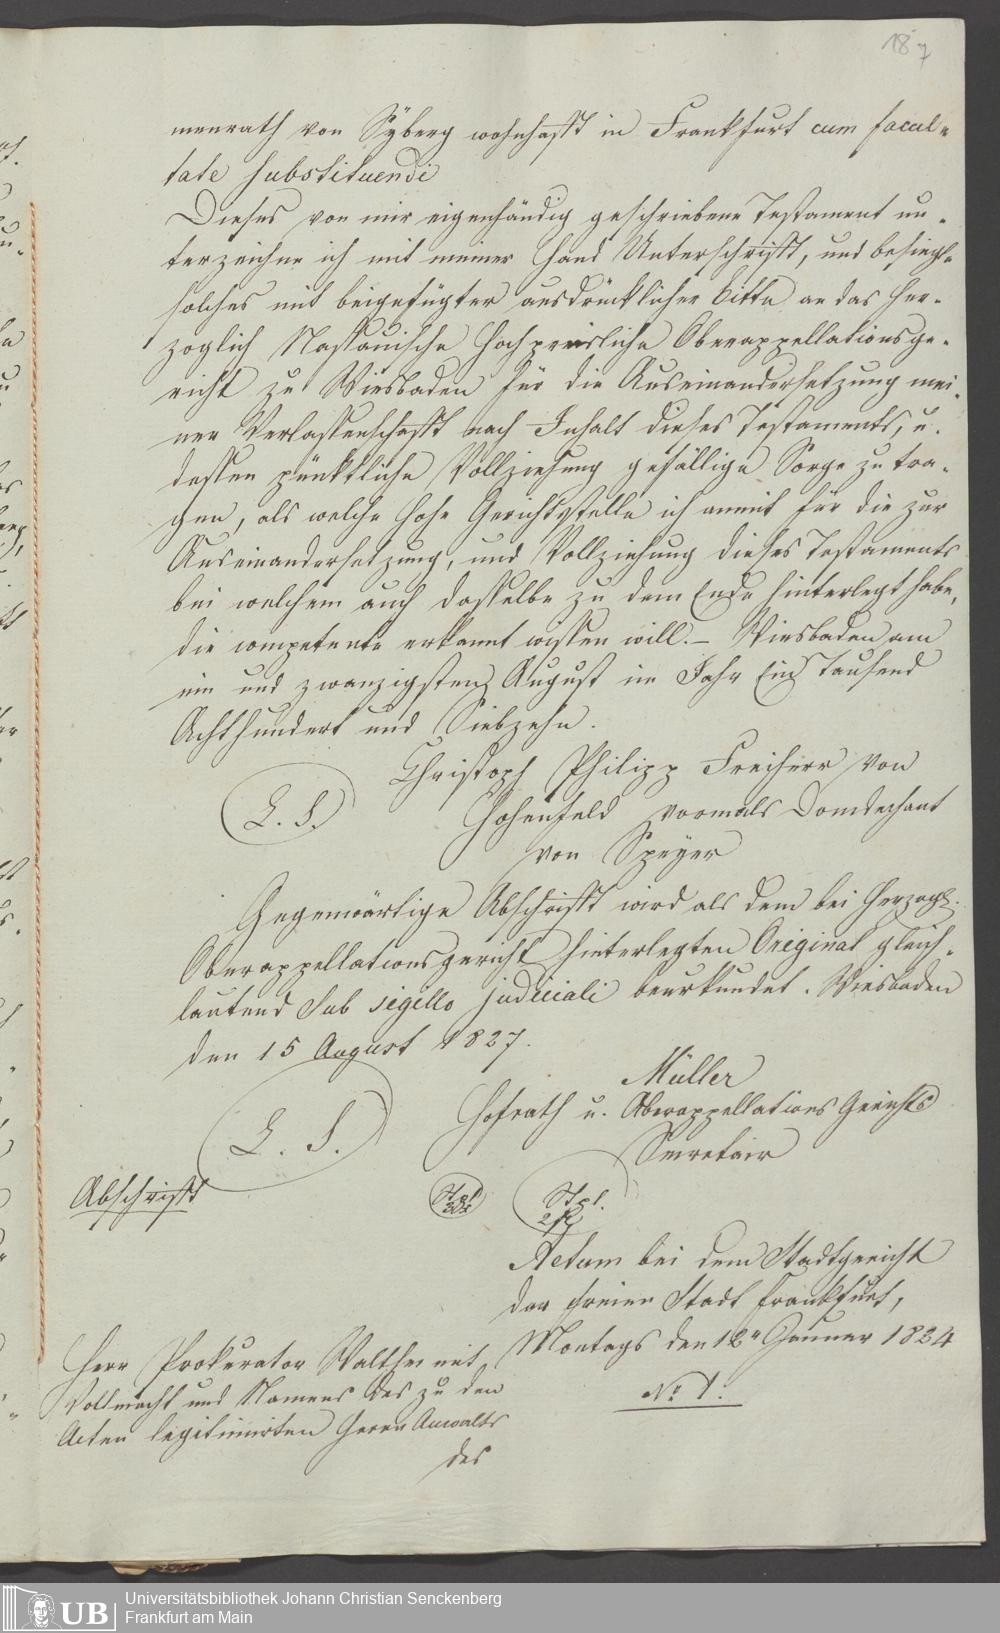 187
menrath von Syberg wohnhafft in Frankfurt cum facul-
tate substituendi
Dieses von mir eigenhändig geschriebene Testament un-
terzeichne ich mit meiner Hand Unterschrifft, und besiegle
solches mit beigefügter ausdrücklicher bitte an das Her-
zoglich Nassauische Hochpreisliche Oberappellationsge-
richt zu Wiesbaden für die Auseinandersetzung mei-
ner Verlassenschafft nach Inhalt dieses Testaments, u.
dessen pünktliche Vollziehung gefällige Sorge zu tra-
gen, als welche hohe Gerichtsstelle ich anmit für die zur
Auseinandersetzung, und Vollziehung dieses Testaments
bei welchem auch dasselbe zu dem Ende hinterlegt habe,
die competente erkannt wissen will. – Wiesbaden am
ein und zwanzigsten August im Jahr Ein Tausend
Achthundert und Siebzehn.
Christoph Philipp Freiherr von
L. S. Hohenfeld vormals Domdechant
von Speyer
Gegenwärtige Abschrifft wird als dem bei Herzogl.
Oberappellationsgericht hinterlegten Original gleich-
lautend sub sigillo judiciali beurkundet. Wiesbaden
den 15 August 1827.
Müller
L. S. Hofrath u. Oberappellations Gerichts
Secretair
Abschrifft
Stpl.
Stpl.
Actum bei dem Stadtgericht
der freien Stadt Frankfurt,
Montags den 12n Januar 1824
No 1.
Herr Prokurator Walther mit
Vollmacht und Namens des zu den
Acten legitimirten Herrn Anwalts
des
Universitätsbibliothek Johann Christian Senckenberg
Frankfurt am Main
UB